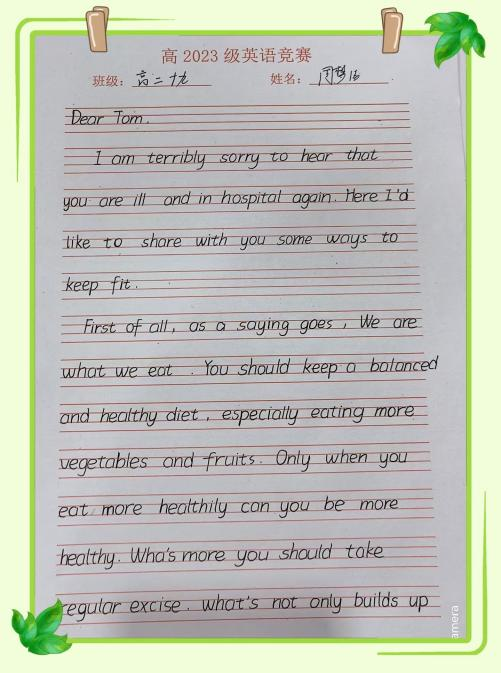 高 2023 级英语竞赛
班级: 高二十九 姓名:
Dear Tom.
I am terribly sorry to hear that
you are ill and in hospital again. Here I'd
like to share with you some ways to
keep fit.
First of all, as a saying goes, We are
what we eat . You should keep a balanced
and healthy diet, especially eating more
vegetables and fruits. Only when you
eat more healthily can you be more
healthy. Wha's more you should take
regular excise. what's not only builds up
amera